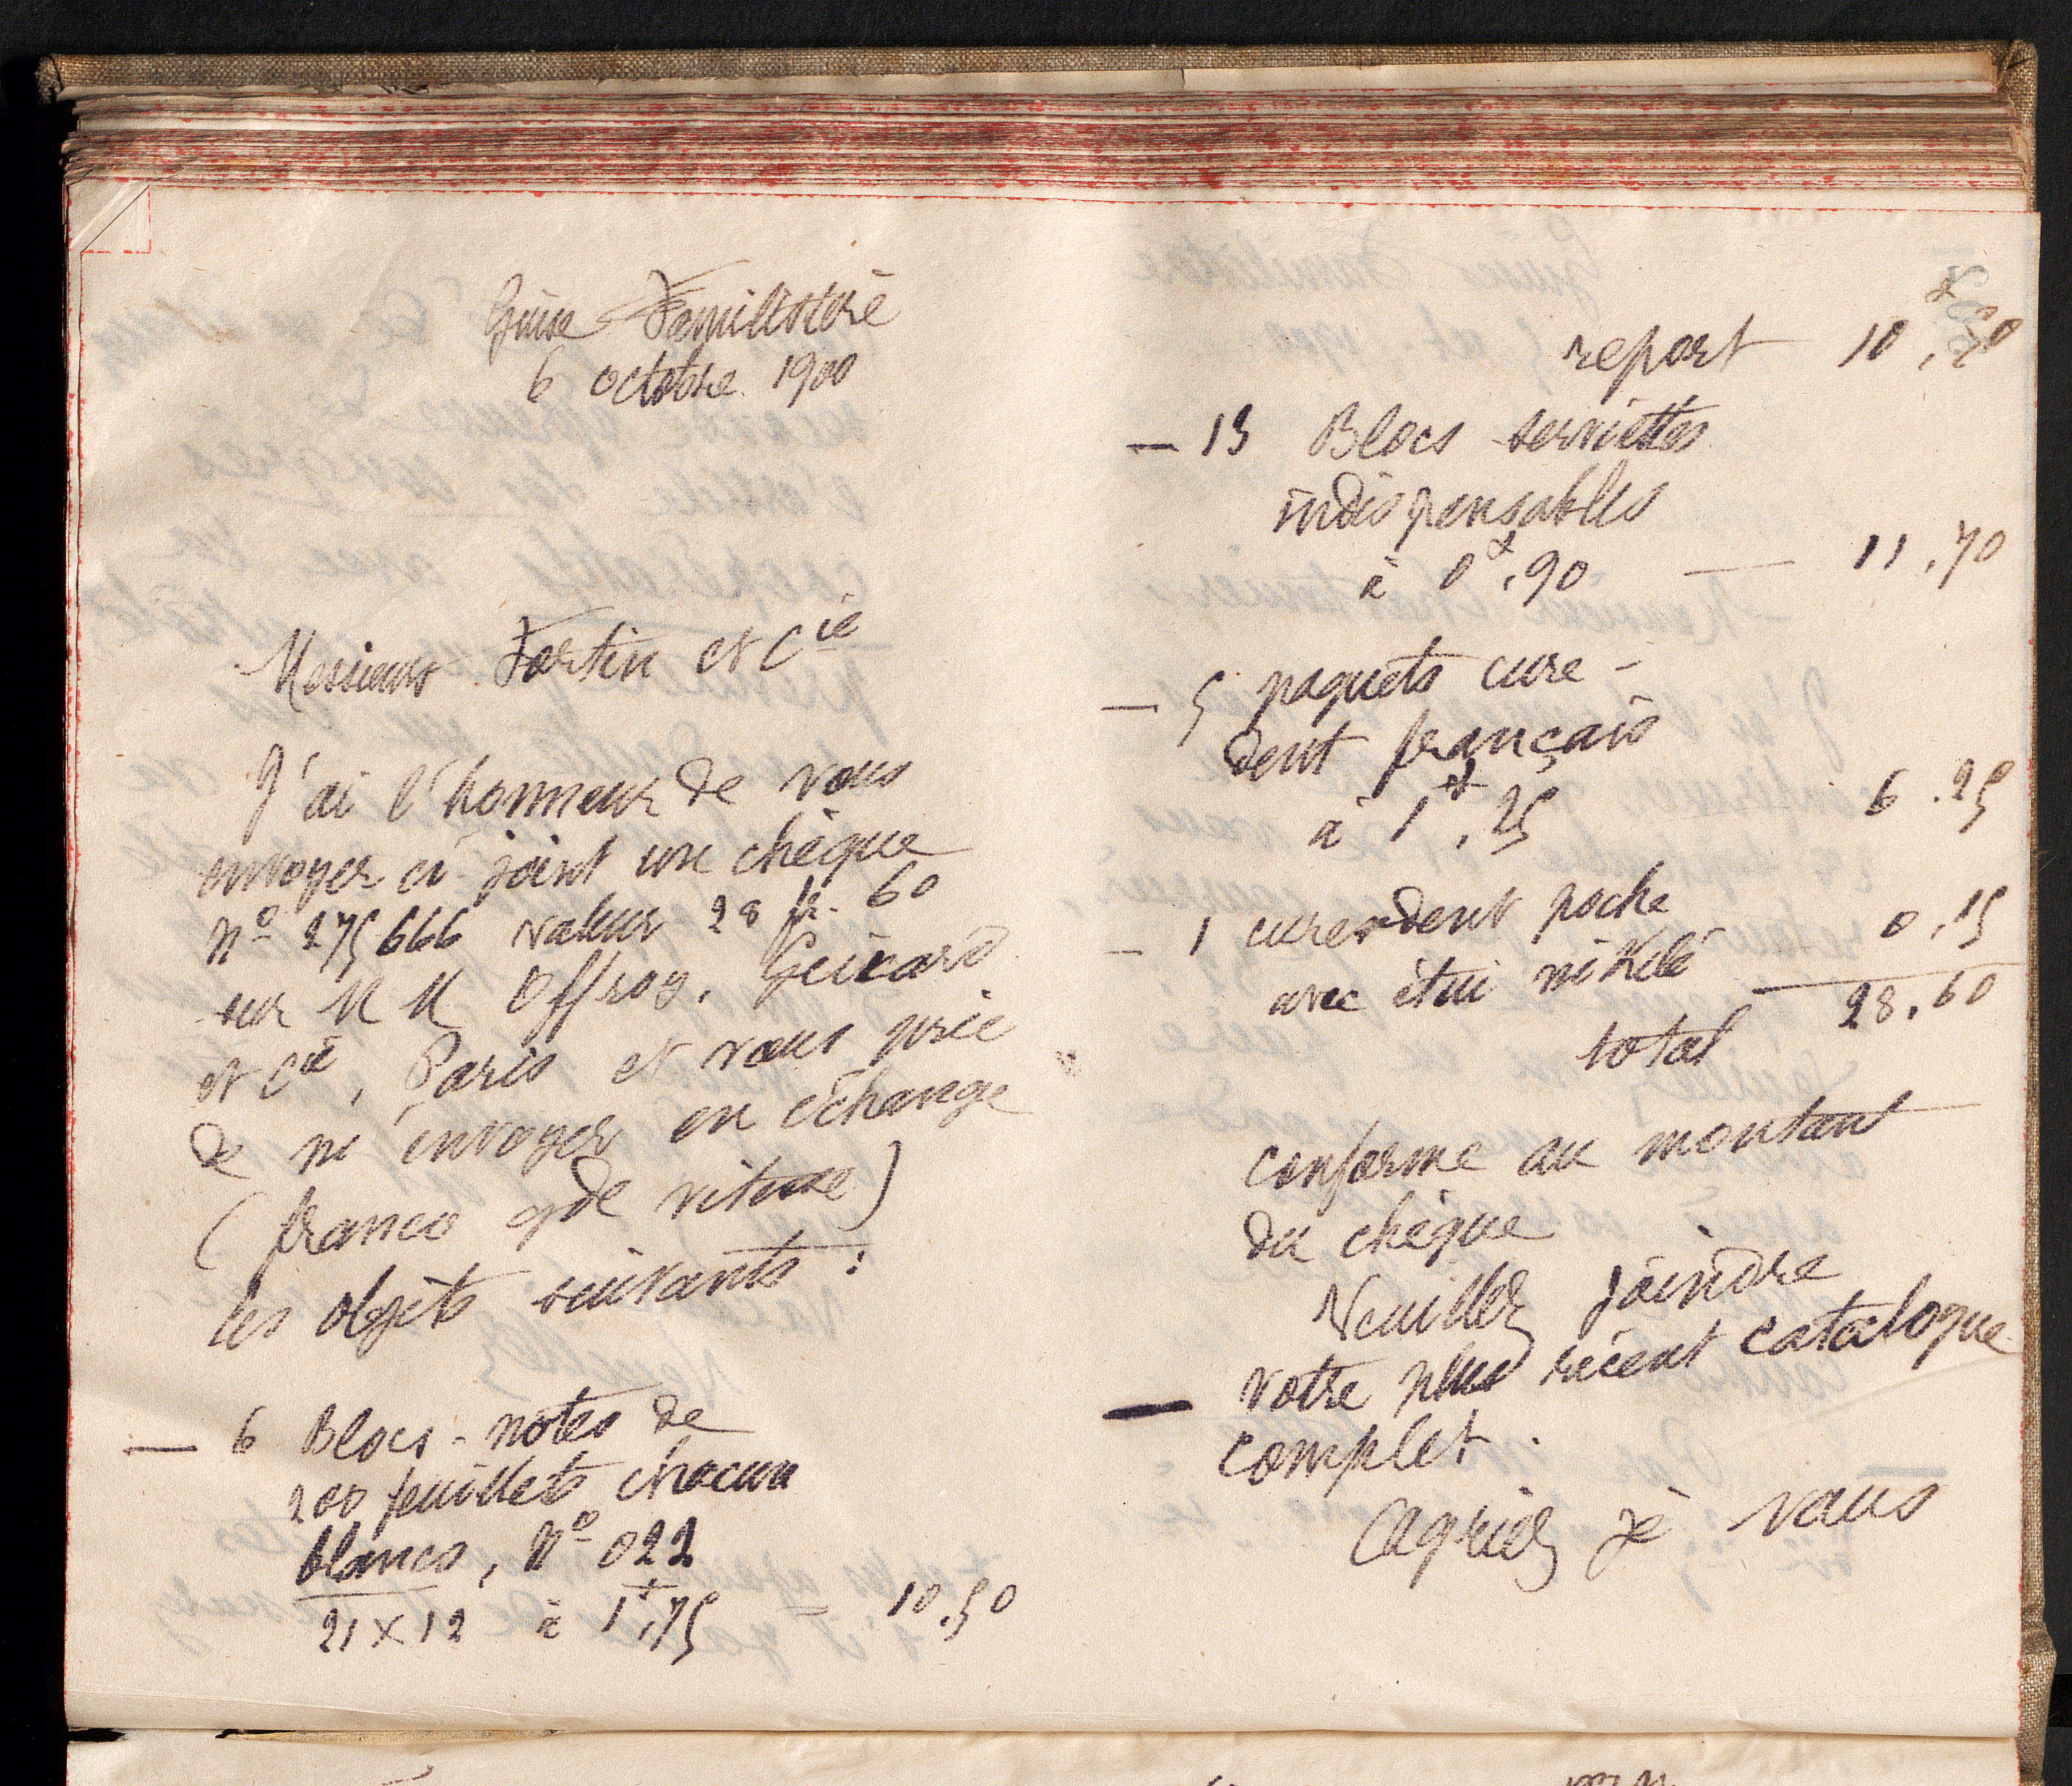 Guise Familistère
6 octobre 1900
Messieurs Fortin et Cie
J'ai l'honneur de vous
envoyer ci-joint un chèque
No 275666 valeur 28 fr. 60
sur M M Offroy, Guiard
et Cie, Paris et vous prie
de m'envoyer en échange
(franco gde vitesse)
les objets suivants :
— 6 Blocs-notes de
200 feuillets chacun
blancs, No 022
21 x 12 à 1f,75 = 10.50
report 10f,50
— 13 Blocs serviettes
indispensables
à 0f,90 — 11,70
— 5 paquets cure-
dent français
à 1f,25 6.25
— 1 cure-dent poche
avec étui nikelé 0,15
total 28.60
conforme au montant
du chèque
Veuillez joindre
— votre plus récent catalogue
complet.
Agréez je vous